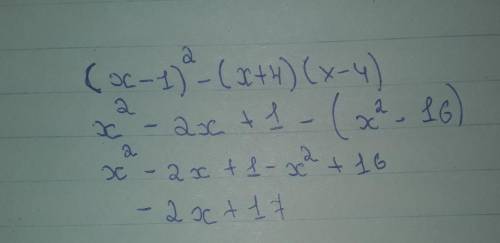 (x-1)² - (x+4)(x-4)
x² - 2x + 1 - (x² - 16)
x² - 2x + 1 - x² + 16
- 2x + 17